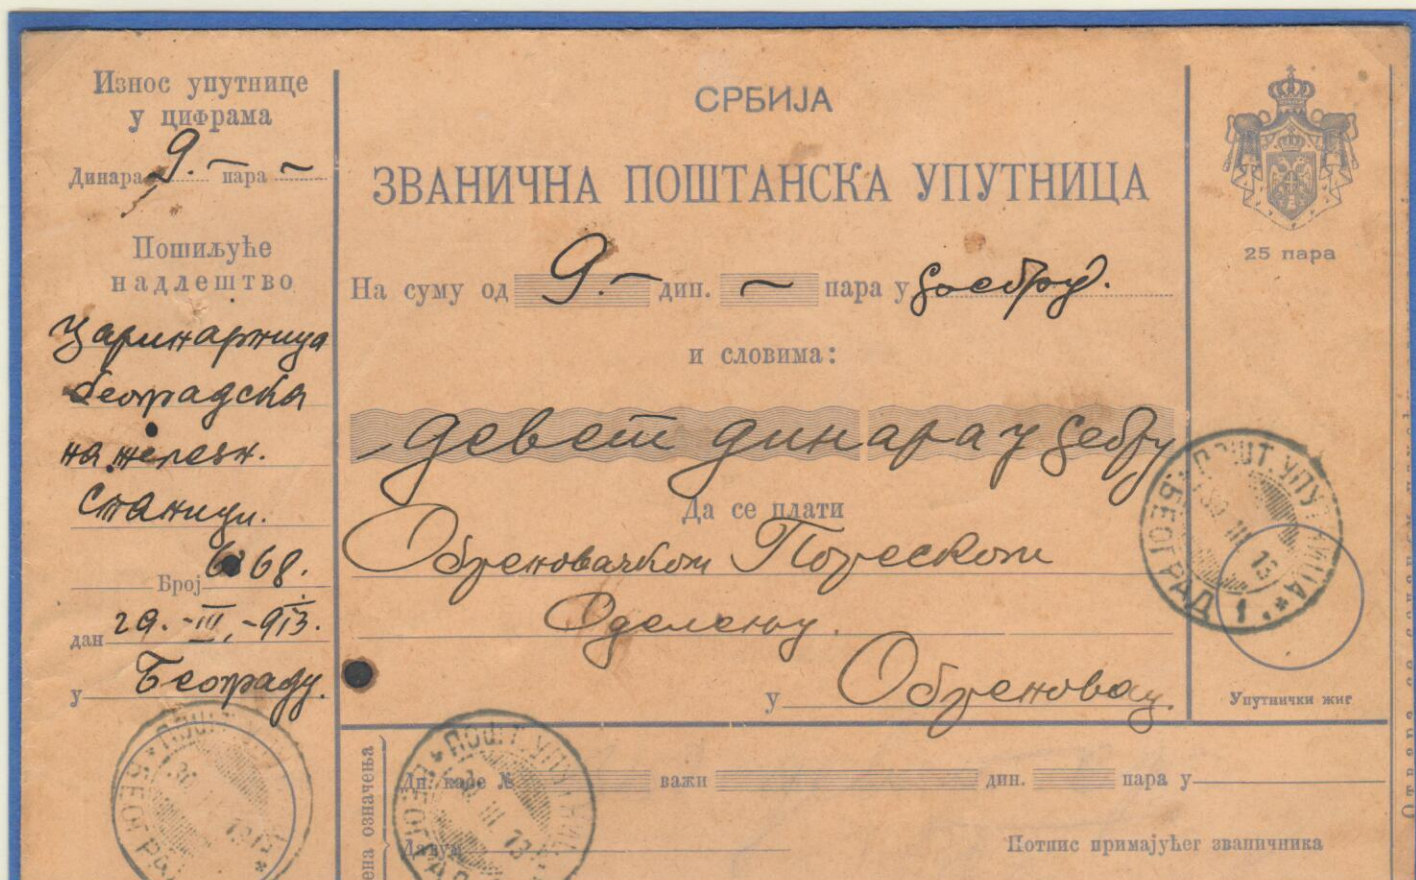 Износ упутнице
у цифрама
Динара 9.— пара —
Пошиљуће
надлештво
Царинарница
београдска
на железн.
станици.
Број 6168.
дан 29.-III.-913.
у Београду.
СРБИЈА
ЗВАНИЧНА ПОШТАНСКА УПУТНИЦА
На суму од 9.— дин. — пара у сребру.
и словима:
девет динара у сребру
Да се плати
Обреновачком Пореском
Оделењу.
у Обреновац.
25 пара
ПОШТ. УПУТНИЦА
БЕОГРАД 1.
III 13
Упутнички жиг
ПОШТ. УПУТНИЦА
БЕОГРАД
III 13
Дн. касе № важи дин. пара у
Датум
Потпис примајућег званичника